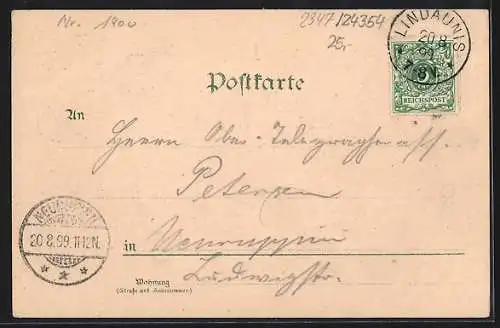 Nr. 1900
2347/24354
25,-
LINDAUNIS
20 8
99
7-8N
REICHSPOST
Postkarte
An
Herrn Ober-Telegraphenass.
Petersen
NEURUPPIN
20.8.99.11-12N.
in Neuruppin
Ludwigstr.
Wohnung
(Straße und Hausnummer)